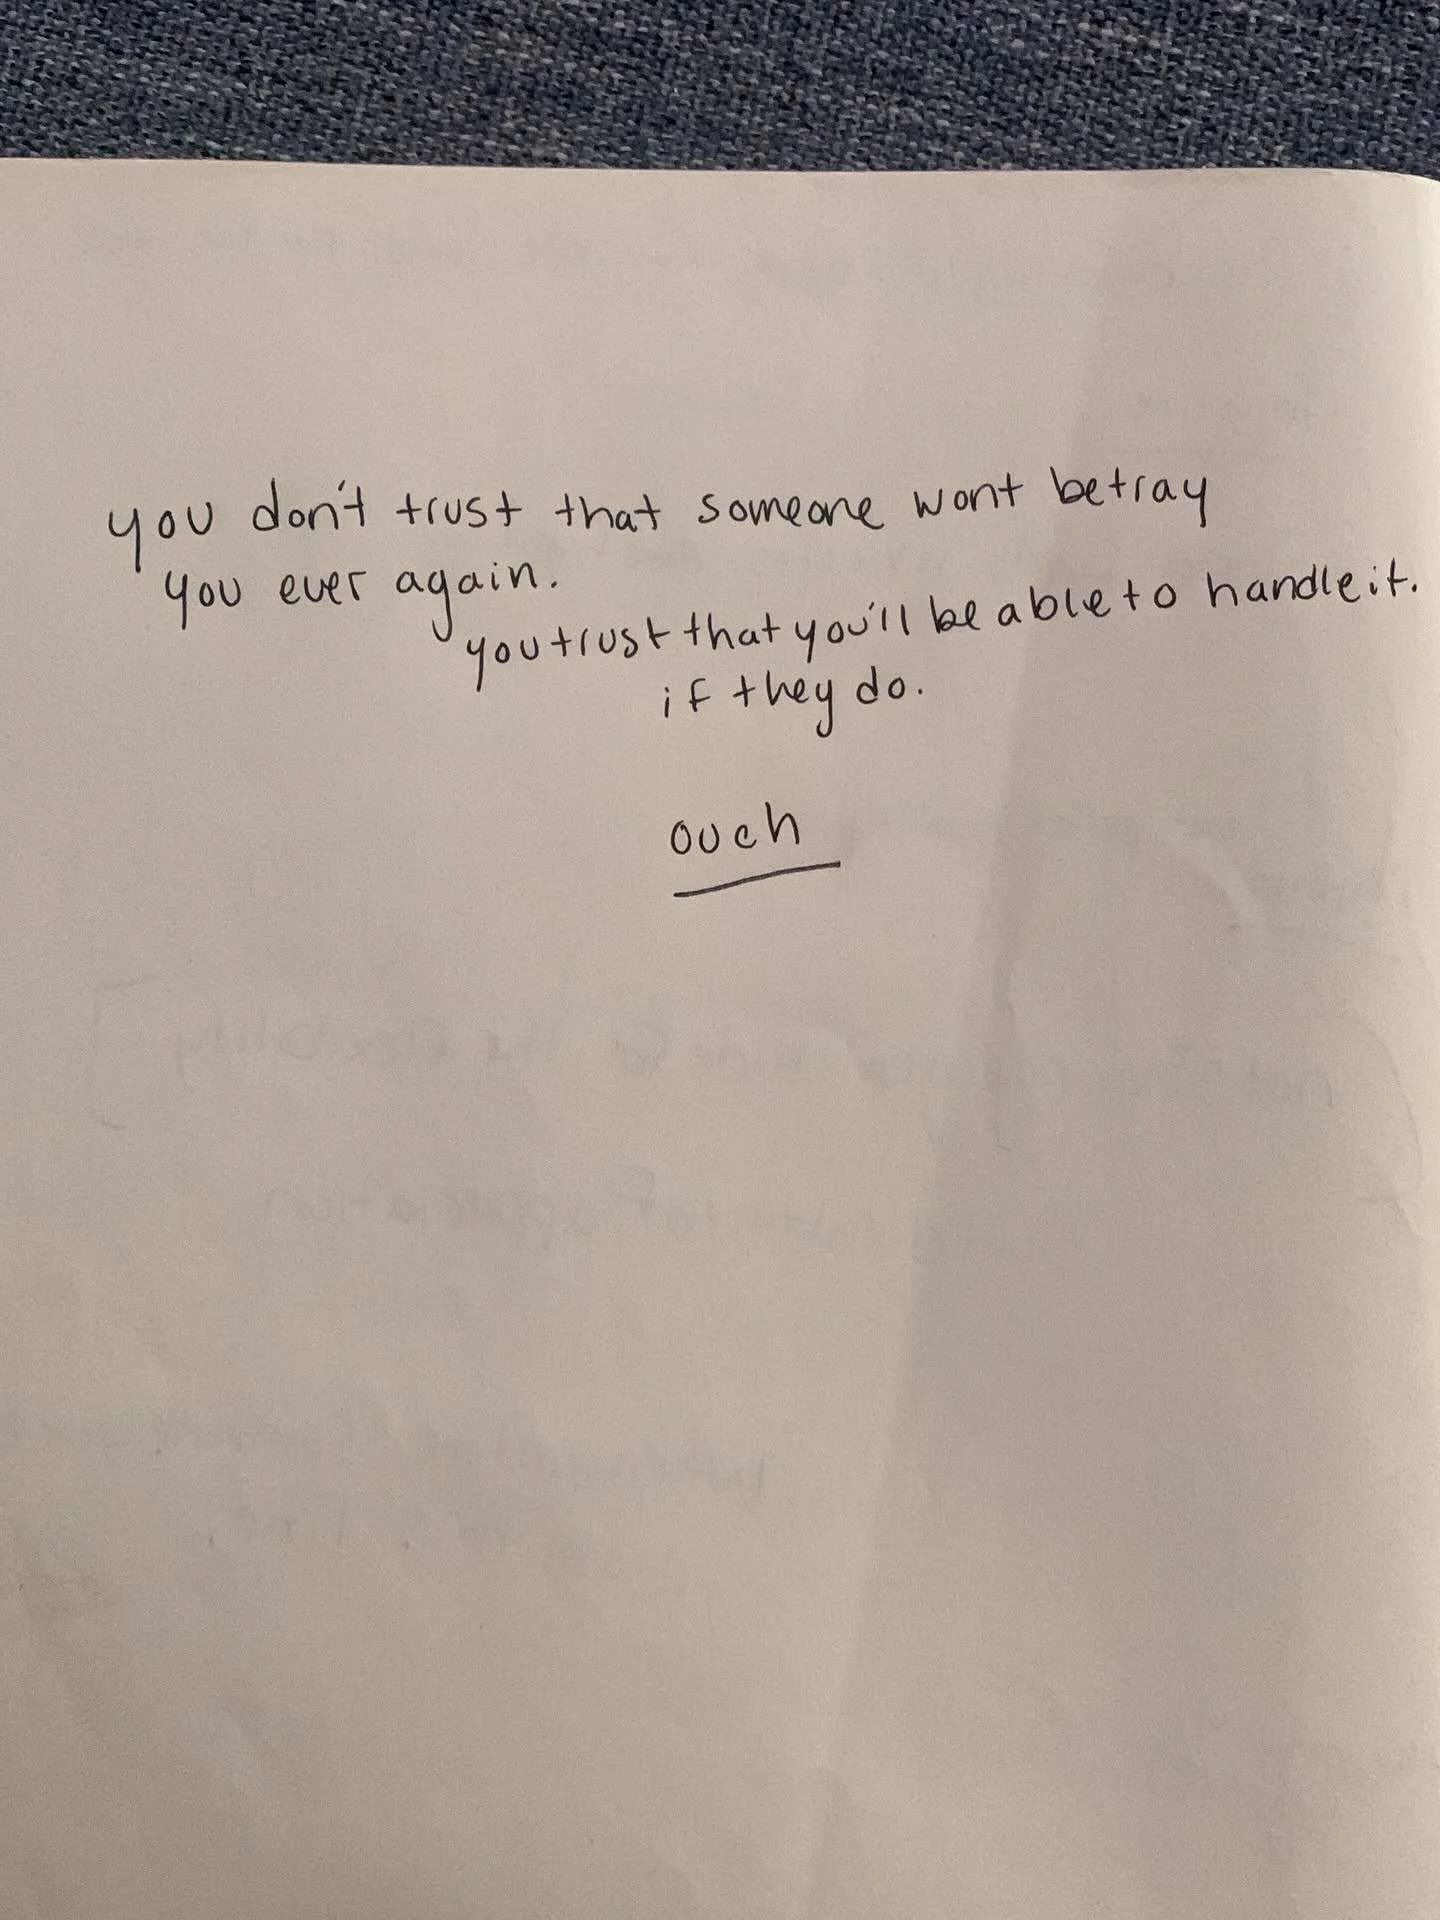 you don't trust that someone wont betray
you ever again.
you trust that you'll be able to handle it.
if they do.
ouch